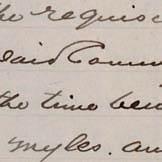 he requis
said Comm
the time bein
myles. an